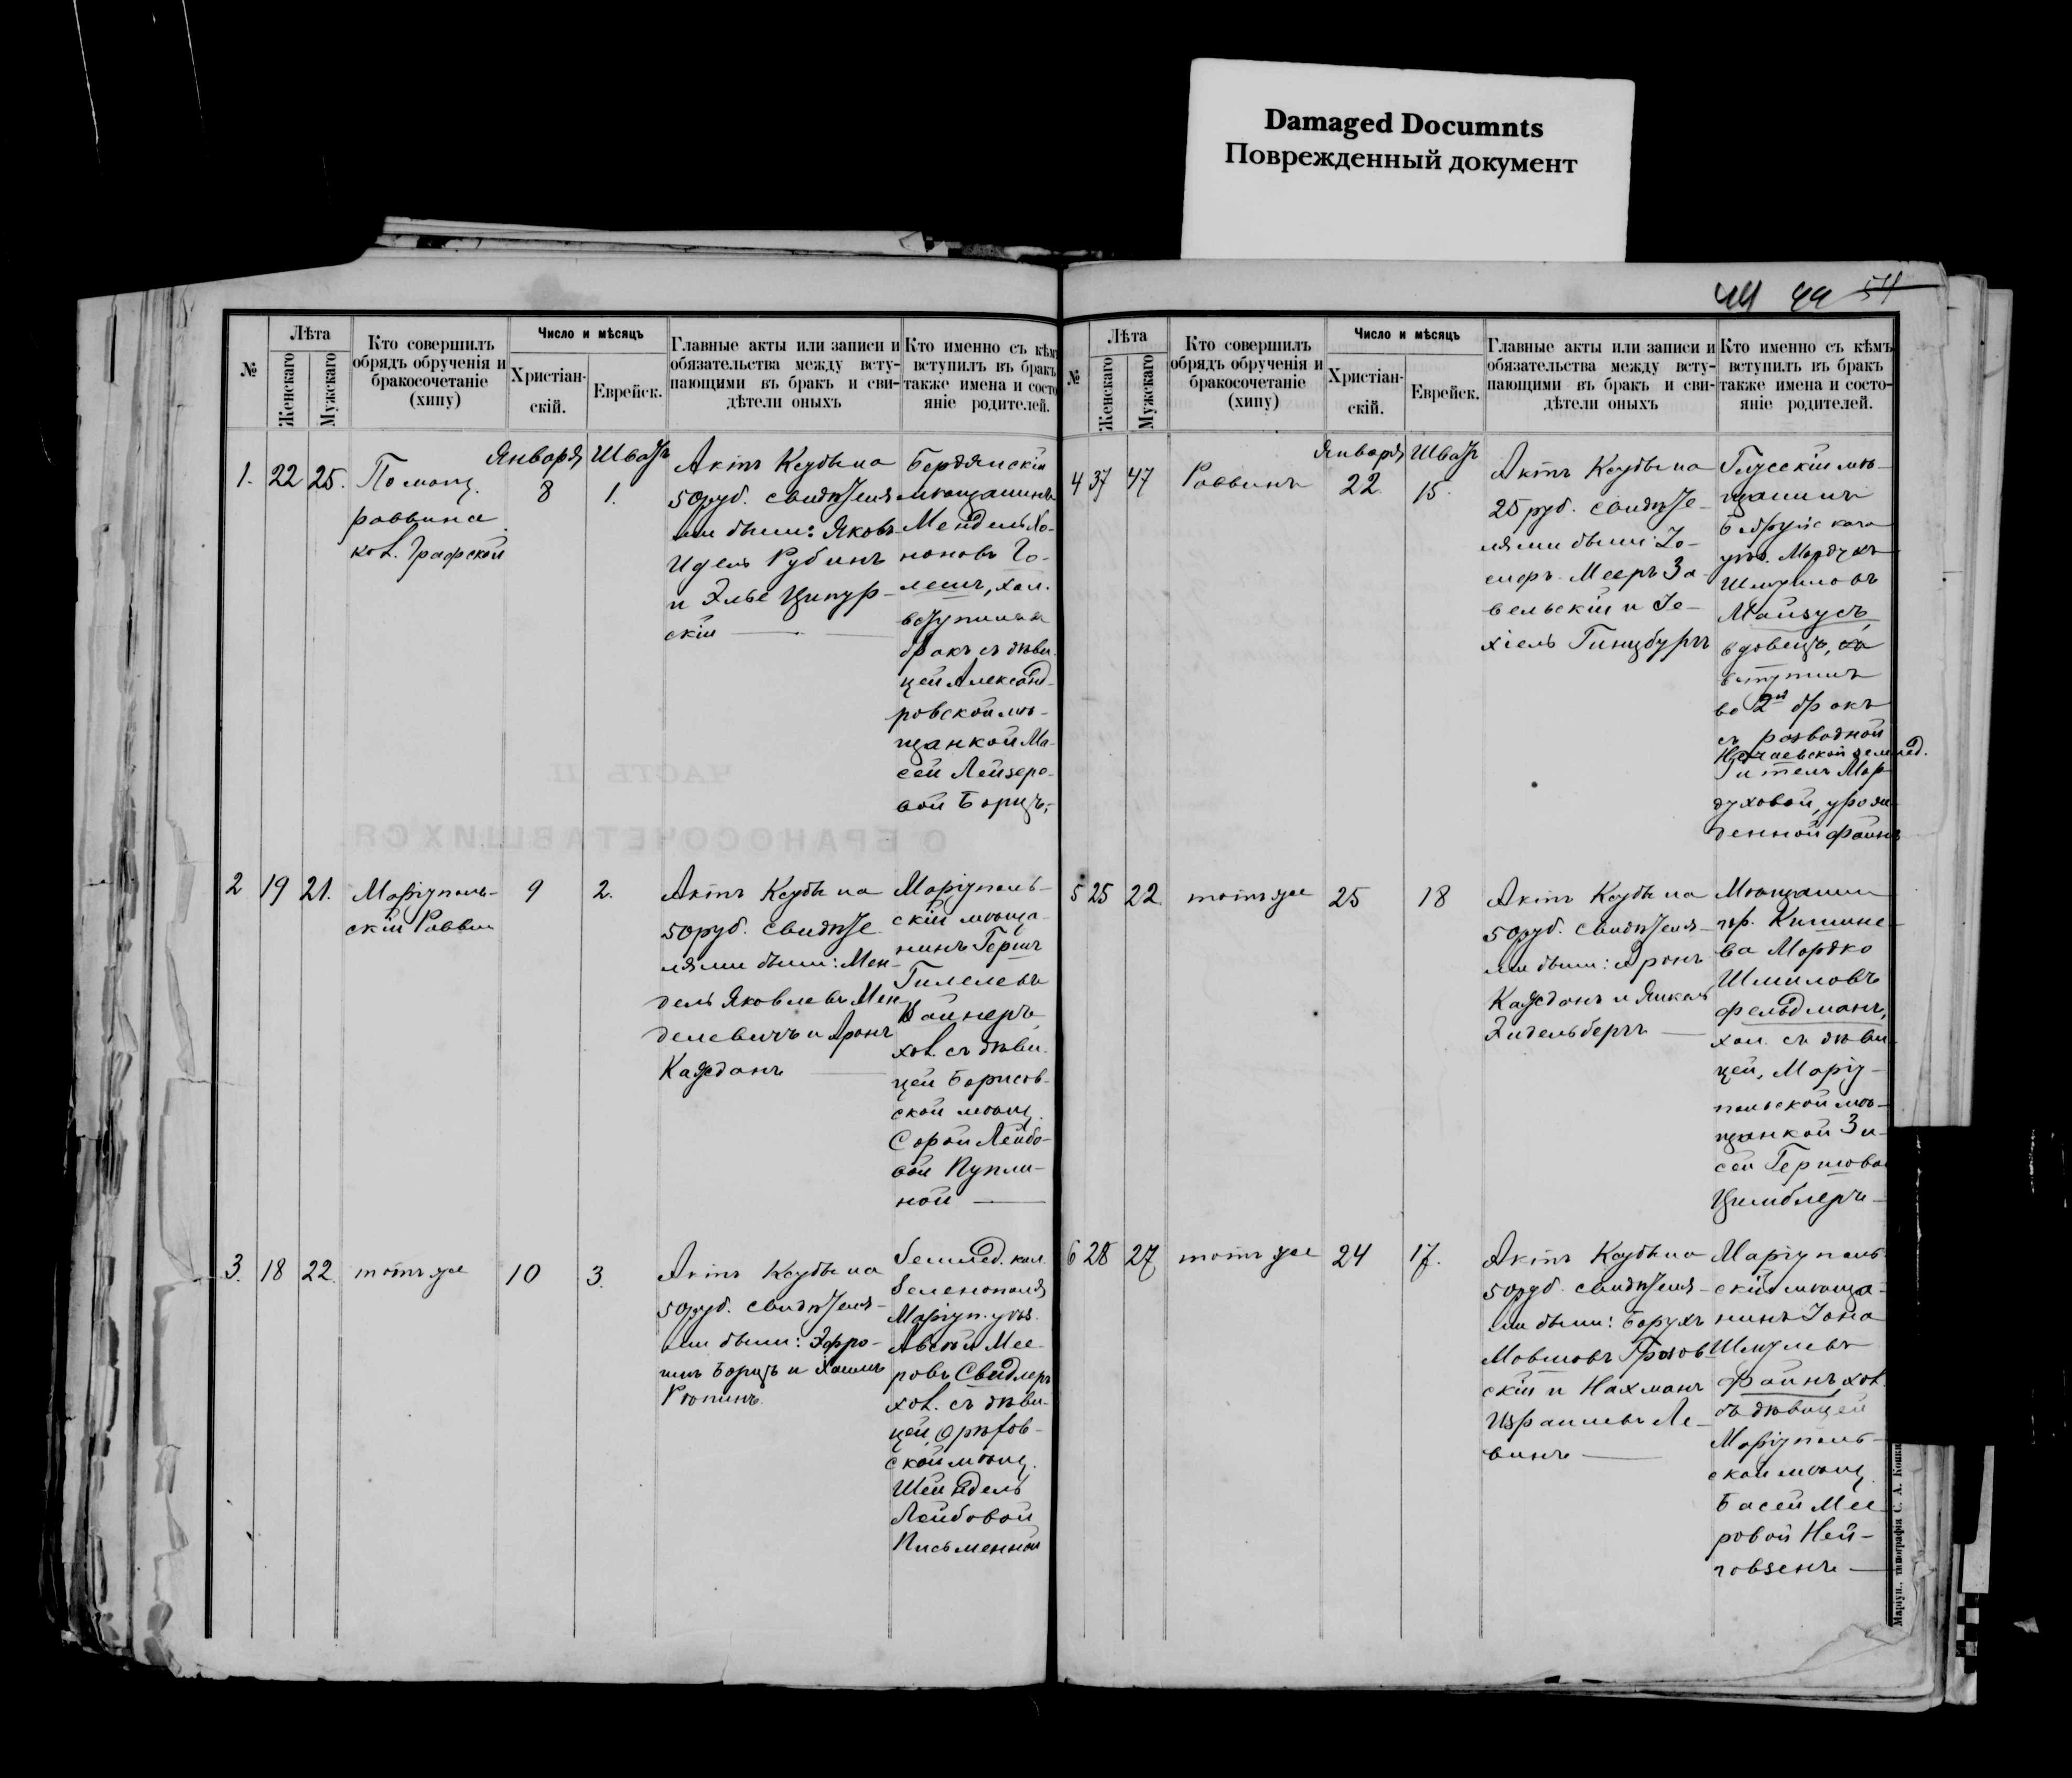 Damaged Documnts
Поврежденный документ
44 44 54
№
Лѣта
Женскаго
Мужскаго
Кто совершилъ
обрядъ обрученія и
бракосочетаніе
(хипу)
Число и мѣсяцъ
Христіан-
скій.
Еврейск.
Главные акты или записи и
обязательства между всту-
пающими въ бракъ и сви-
дѣтели оныхъ
Кто именно съ кѣмъ
вступилъ въ бракъ
также имена и состо
яніе родителей.
Января Шватъ
1. 22 25.
По мощ.
раввина
кол. Графской
8
1.
Актъ Ксубы на
50 руб. свидѣтеля
ми были: Яковъ
Идель Рубинъ
и Элье Ципур-
скій
Бердянскій
мѣщанинъ
Мендель Хо-
ноновъ Го-
лешъ, хол.
вступилъ въ
бракъ съ дѣви-
цей Александ-
ровской мѣ-
щанкой Ма-
сей Лейзеро-
вой Борцъ,
2 19 21.
Маріуполь-
скій Раввин
9
2.
Актъ Ксубы на
50 руб. свидѣте
лями были: Мен-
дель Яковлевъ Мен
делевичъ и Аронъ
Кажданъ
Маріуполь-
скій мѣща-
нинъ Гершъ
Гилелевъ
Вайнеръ,
хол. съ дѣви-
цей Борисов-
ской мѣщ.
Сорой Лейбо-
вой Пупли-
ной
3. 18 22.
тотъ же
10
3.
Актъ Ксубы на
50 руб. свидѣтеля-
ми были: Эфро-
имъ Борцъ и Хаимъ
Рюпинъ.
Землед. кол.
Зеленополя
Маріуп. уѣз.
Мее-
ровъ Свидлеръ
хол. съ дѣви-
цей Орѣхов-
ской мѣщ.
Шейндель
Лейбовой
Письменной
№
Лѣта
Женскаго
Мужскаго
Кто совершилъ
обрядъ обрученія и
бракосочетаніе
(хипу)
Число и мѣсяцъ
Христіан-
скій.
Еврейск.
Главные акты или записи и
обязательства между всту-
пающими въ бракъ и сви-
дѣтели оныхъ
Кто именно съ кѣмъ
вступилъ въ бракъ
также имена и состо-
яніе родителей.
Января Шватъ
4 37 47
Раввинъ
22
15.
Актъ Ксубы на
25 руб. свидѣте-
лями были: Іо-
сифъ Мееръ За-
вельскій и Іе-
хіель Гинцбургъ
Глусскій мѣ-
щанинъ
Бобруйскаго
уѣз. Мордухъ
Шмуиловъ
Майзусъ,
вдовецъ,
вступилъ
во 2й бракъ
съ разводной
Нечаевской землед.
Гителъ Мор
духовой, урож
денной Файнъ
5 25 22
тотъ же
25
18
Актъ Ксубы на
50 руб. свидѣтеля-
ми были: Аронъ
Кажданъ и Янкель
Эйдельбергъ
Мѣщанин
гор. Кишине-
ва Мордко
Шмиловъ
Фельдманъ,
хол. съ дѣви-
цей, Маріу-
польской мѣ-
щанкой Зи-
сей Гершовой
Цимблеръ
6 28 27
тотъ же
24
17.
Актъ Ксубы на
50 руб. свидѣтеля-
ми были: Борухъ
Мовшовъ Грозов-
скій и Нахманъ
Израилевъ Ле-
винъ
Маріуполь-
скій мѣща-
нинъ Іона
Шмулевъ
Файнъ хол.
съ дѣвицей
Маріуполь-
ской мѣщ.
Басей Мее
ровой Ней-
говзенъ
Маріуп., типографія С. А. Копки
ЧАСТЬ II.
О БРАКОСОЧЕТАВШИХСЯ.